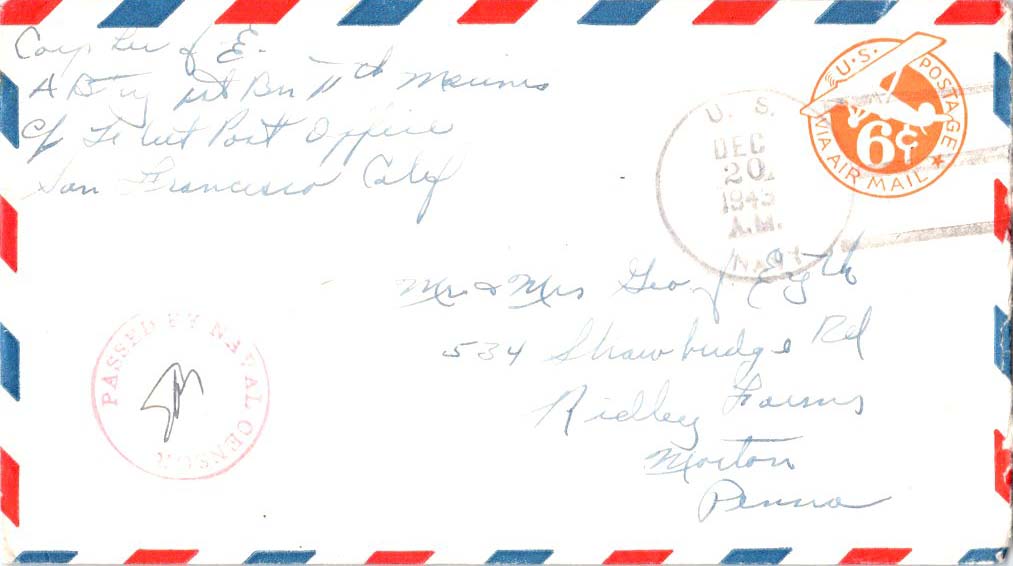 Corp
A Btry 1st Bn 11th Marines
c/o Fleet Post Office
San Francisco Calif
U.S. POSTAGE
6¢
VIA AIR MAIL
U. S.
DEC
20
1943
A.M.
NAVY
Mr & Mrs Geo
534 Shawbridge Rd
Ridley Farms
Morton
Penna
PASSED BY NAVAL CENSOR